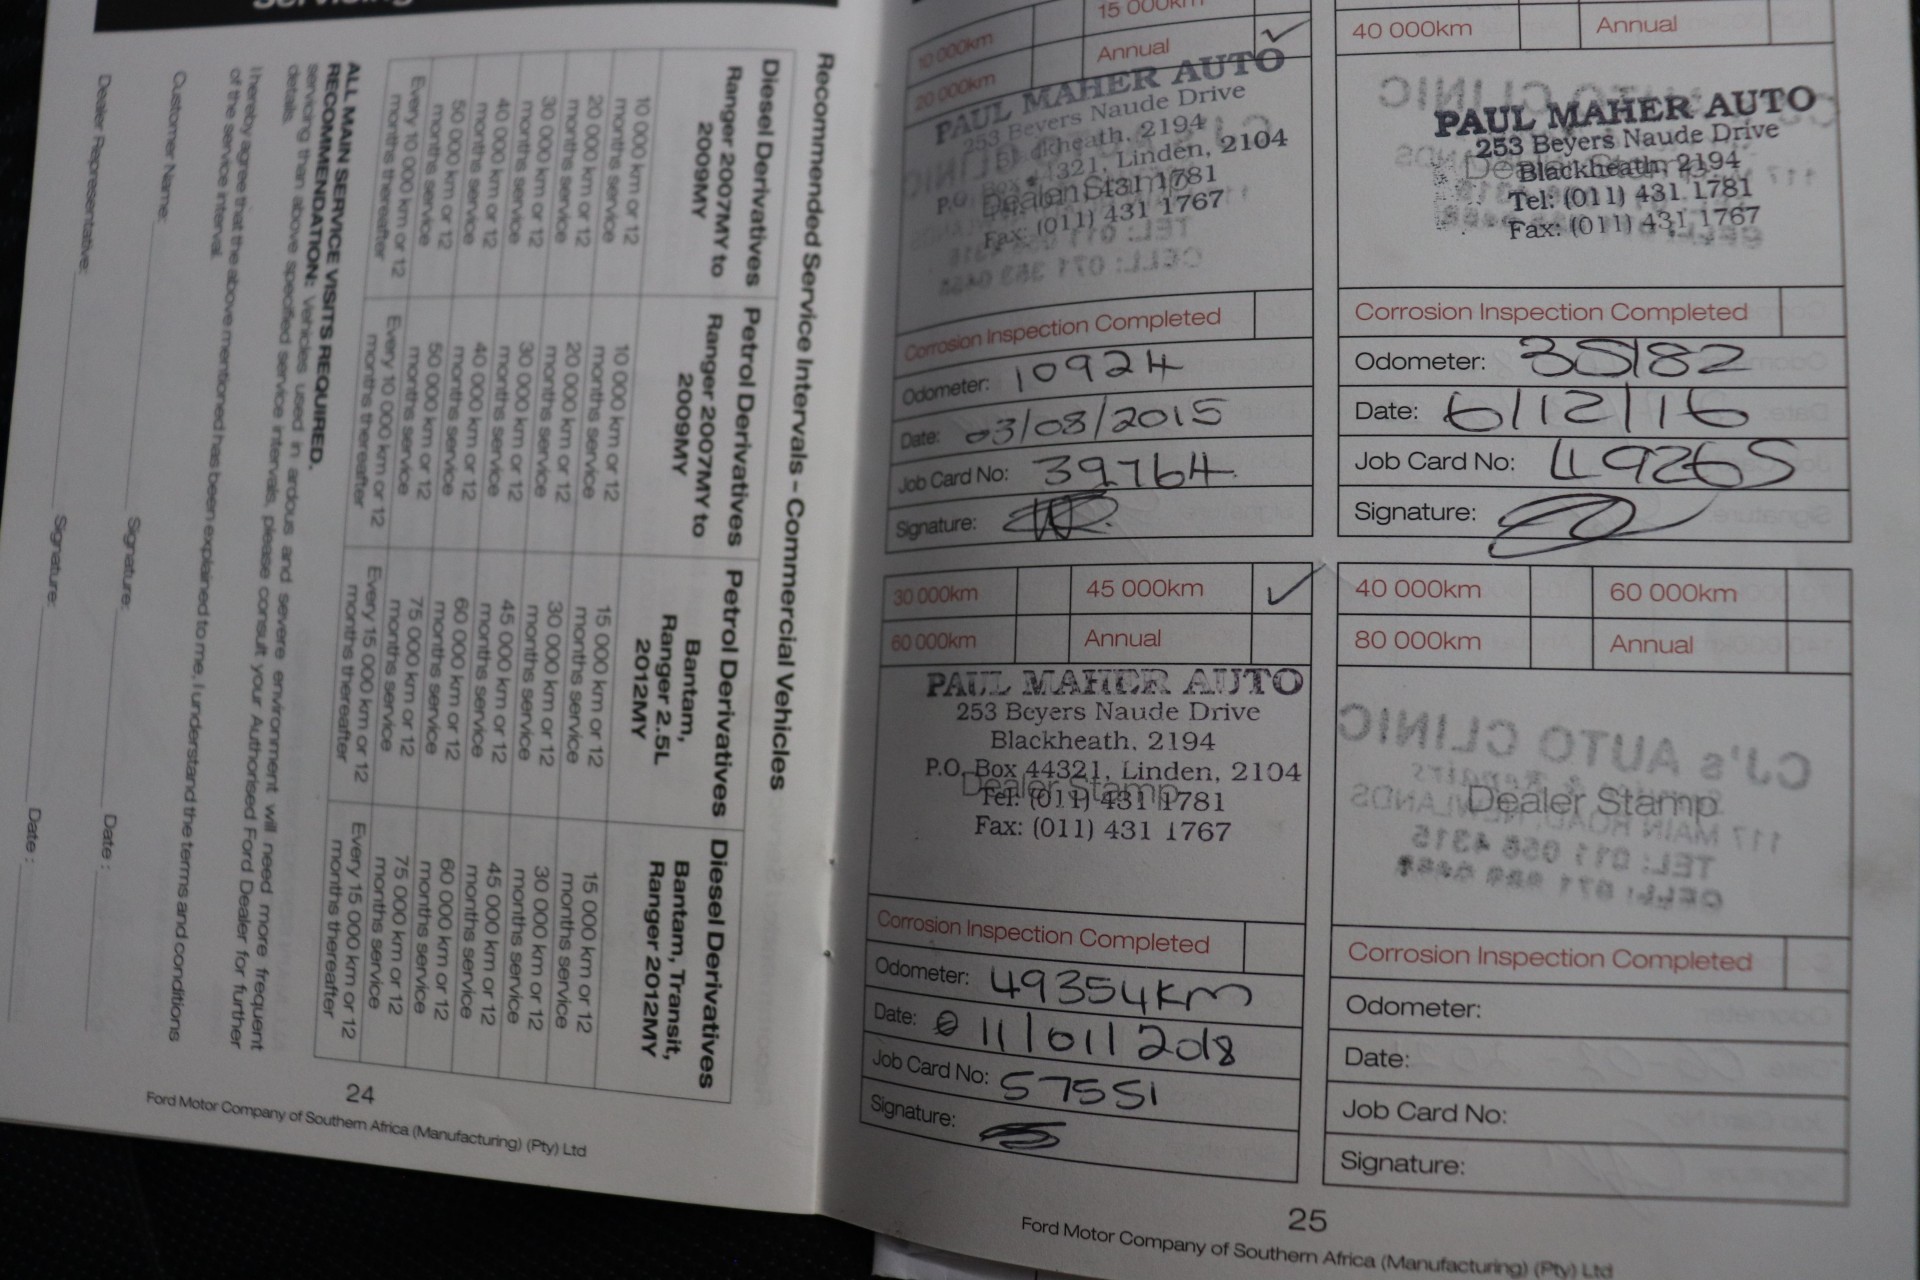 Recommended Service Intervals - Commercial Vehicles
Diesel Derivatives
Ranger 2007MY to
2009MY
10 000 km or 12
months service
20 000 km or 12
months service
30 000 km or 12
months service
40 000 km or 12
months service
50 000 km or 12
months service
Every 10 000 km or 12
months thereafter
Petrol Derivatives
Ranger 2007MY to
2009MY
10 000 km or 12
months service
20 000 km or 12
months service
30 000 km or 12
months service
40 000 km or 12
months service
50 000 km or 12
months service
Every 10 000 km or 12
months thereafter
Petrol Derivatives
Bantam,
Ranger 2.5L
2012MY
15 000 km or 12
months service
30 000 km or 12
months service
45 000 km or 12
months service
60 000 km or 12
months service
75 000 km or 12
months service
Every 15 000 km or 12
months thereafter
Diesel Derivatives
Bantam, Transit,
Ranger 2012MY
15 000 km or 12
months service
30 000 km or 12
months service
45 000 km or 12
months service
60 000 km or 12
months service
75 000 km or 12
months service
Every 15 000 km or 12
months thereafter
ALL MAIN SERVICE VISITS REQUIRED.
RECOMMENDATION: Vehicles used in ardous and severe environment will need more frequent
servicing than above specified service intervals, please consult your Authorised Ford Dealer for further
details.
I hereby agree that the above mentioned has been explained to me, I understand the terms and conditions
of the service interval.
Customer Name: Signature: Date :
Dealer Representative: Signature: Date :
24
Ford Motor Company of Southern Africa (Manufacturing) (Pty) Ltd
10 000km 15 000km
20 000km Annual ✓
PAUL MAHER AUTO
253 Beyers Naude Drive
Blackheath, 2194
Linden, 2104
Dealer Stamp
Fax: (011) 431 1767
Corrosion Inspection Completed
Odometer: 10924
Date: 03/08/2015
Job Card No: 39764
Signature:
40 000km Annual
PAUL MAHER AUTO
253 Beyers Naude Drive
Blackheath, 2194
Tel: (011) 431 1781
Fax: (011) 431 1767
Corrosion Inspection Completed
Odometer: 35182
Date: 6/12/16
Job Card No: 49265
Signature:
30 000km 45 000km ✓
60 000km Annual
PAUL MAHER AUTO
253 Beyers Naude Drive
Blackheath, 2194
P.O. Box 44321, Linden, 2104
Dealer Stamp
Tel: (011) 431 1781
Fax: (011) 431 1767
Corrosion Inspection Completed
Odometer: 49354km
Date: 11/01/2018
Job Card No: 57551
Signature:
40 000km 60 000km
80 000km Annual
CJ's AUTO CLINIC
Dealer Stamp
117 MAIN ROAD, NEWLANDS
Corrosion Inspection Completed
Odometer:
Date:
Job Card No:
Signature:
25
Ford Motor Company of Southern Africa (Manufacturing) (Pty) Ltd